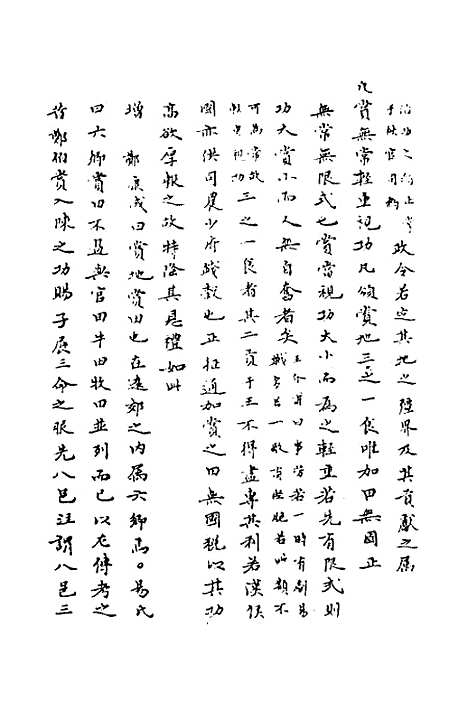 政令者定其地之疆界及其貢獻之屬
凡賞無常輕重視功凡頒賞地三之一食唯加田無國正
無常無限式也賞當視功大小而為之輕重若先有限式則
功大賞小而人無自奮者矣王介甫曰事勞若一時有劇易
戰多若一敵有堅脆若此類不
可為常故
惟其視功三之一食者其二貢于王不得盡專其利若漢侯
國亦供司農少府錢穀也正征通加賞之田無國稅以其功
高欲厚報之故特隆其恩禮如此
增 鄭康成曰賞地賞田也在遠郊之內屬六鄉焉。易氏
曰六鄉賞田不過與官田牛田牧田並列而已以左傳考之
鄭伯賞入陳之功賜子展三命之服先八邑注謂八邑三